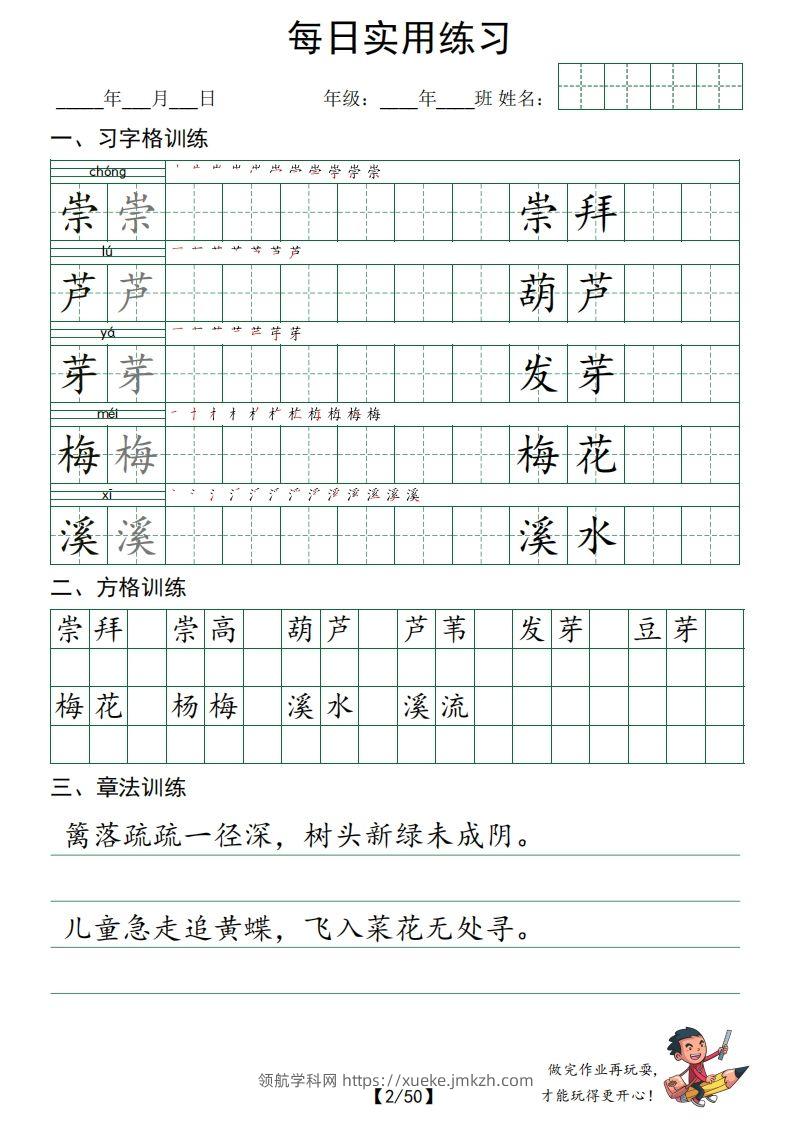 每日实用练习
_____年___月___日 年级：____年____班 姓名：
一、习字格训练
chóng
崇 崇 崇 拜
lú
芦 芦 葫 芦
yá
芽 芽 发 芽
méi
梅 梅 梅 花
xī
溪 溪 溪 水
二、方格训练
崇 拜 崇 高 葫 芦 芦 苇 发 芽 豆 芽
梅 花 杨 梅 溪 水 溪 流
三、章法训练
篱落疏疏一径深，树头新绿未成阴。
儿童急走追黄蝶，飞入菜花无处寻。
做完作业再玩耍，
才能玩得更开心！
领航学科网 https://xueke.jmkzh.com
【2/50】